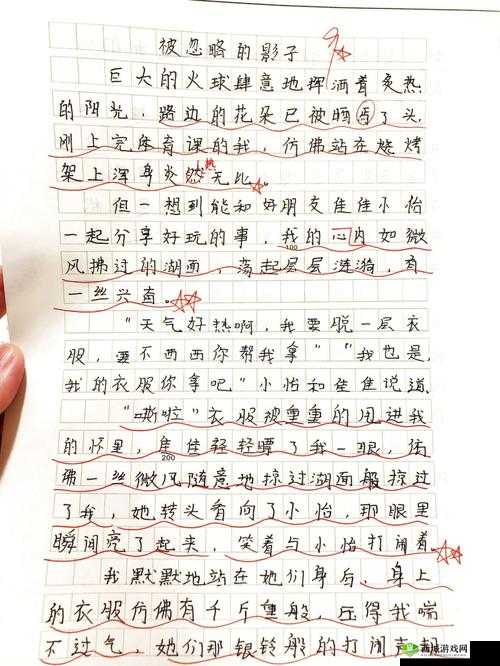 被忽略的影子
巨大的火球肆意地挥洒着炙热
的阳光，路边的花朵已被晒弯了头，
刚上完体育课的我，仿佛站在烧烤
架上浑身炎热无比。
但一想到能和好朋友佳佳小怡
一起分享好玩的事，我的心内如微
100
风拂过的湖面，荡起层层涟漪，有
一丝兴奋。
“天气好热啊，我要脱一层衣
服，要不西西你帮我拿”“我也是，
我的衣服你拿吧”小怡和佳佳说道
“嘶啦”衣服被重重的甩进我
的怀里，佳佳轻轻瞟了我一眼，仿
200
佛一丝微风随意地掠过湖面般掠过
了我，她转头看向了小怡，那眼里
瞬间亮了起来，笑着与小怡打闹着
我默默地站在她们身后，身上
的衣服仿佛有千斤重般，压得我喘
不过气，她们那银铃般的打闹声